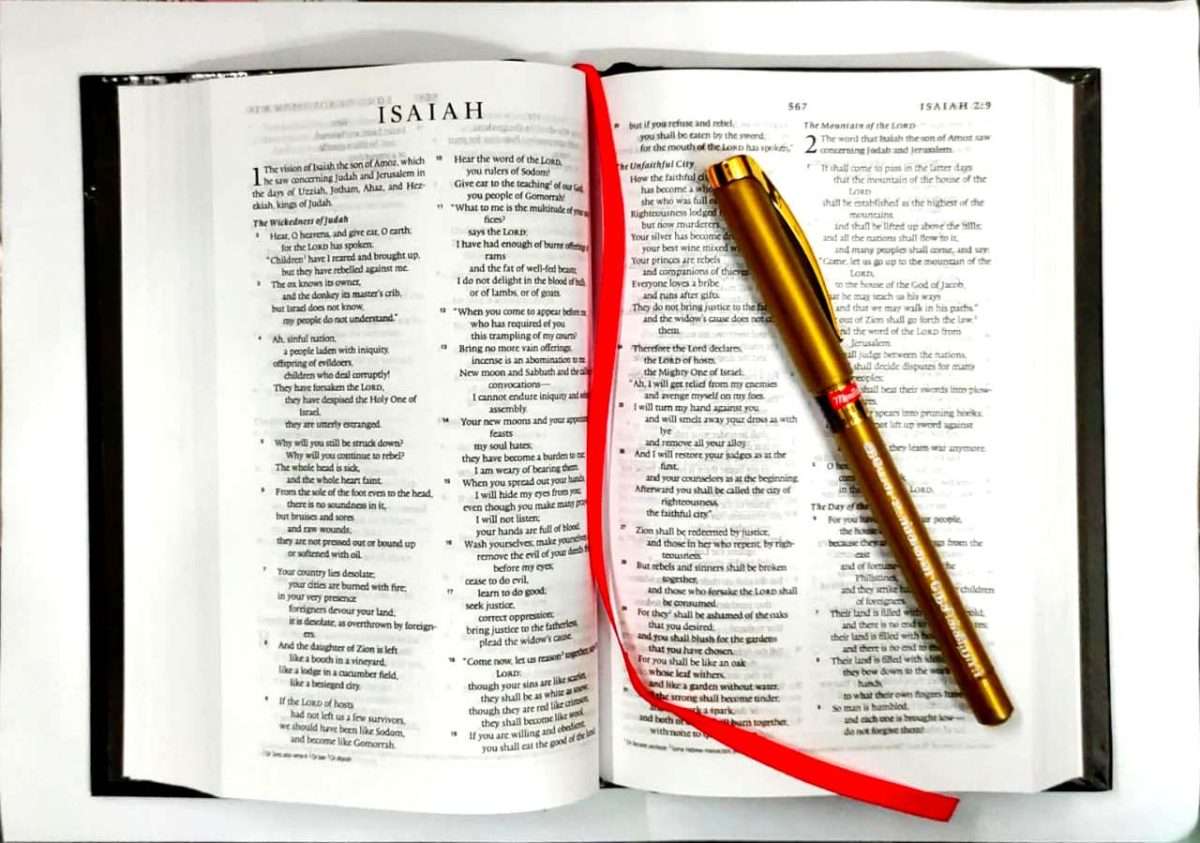 ISAIAH
1 The vision of Isaiah the son of Amoz, which
he saw concerning Judah and Jerusalem in
the days of Uzziah, Jotham, Ahaz, and Hez-
ekiah, kings of Judah.
The Wickedness of Judah
2 Hear, O heavens, and give ear, O earth;
for the LORD has spoken:
"Children have I reared and brought up,
but they have rebelled against me.
3 The ox knows its owner,
and the donkey its master's crib,
but Israel does not know,
my people do not understand."
4 Ah, sinful nation,
a people laden with iniquity,
offspring of evildoers,
children who deal corruptly!
They have forsaken the LORD,
they have despised the Holy One of
Israel,
they are utterly estranged.
5 Why will you still be struck down?
Why will you continue to rebel?
The whole head is sick,
and the whole heart faint.
6 From the sole of the foot even to the head,
there is no soundness in it,
but bruises and sores
and raw wounds;
they are not pressed out or bound up
or softened with oil.
7 Your country lies desolate;
your cities are burned with fire;
in your very presence
foreigners devour your land;
it is desolate, as overthrown by foreign-
ers.
8 And the daughter of Zion is left
like a booth in a vineyard,
like a lodge in a cucumber field,
like a besieged city.
9 If the LORD of hosts
had not left us a few survivors,
we should have been like Sodom,
and become like Gomorrah.
10 Hear the word of the LORD,
you rulers of Sodom!
Give ear to the teaching of our God,
you people of Gomorrah!
11 "What to me is the multitude of
fices?
says the LORD;
I have had enough of burnt offerings
rams
and the fat of well-fed beasts;
I do not delight in the blood of bulls,
or of lambs, or of goats.
12 "When you come to appear before
who has required of you
this trampling of my courts?
13 Bring no more vain offerings;
incense is an abomination to
New moon and Sabbath and the
convocations—
I cannot endure iniquity and
assembly.
14 Your new moons and your
feasts
my soul hates;
they have become a burden to
I am weary of bearing them.
15 When you spread out your hands,
I will hide my eyes from you;
even though you make many
I will not listen;
your hands are full of blood.
16 Wash yourselves; make yourselves
remove the evil of your deeds
before my eyes;
cease to do evil,
17 learn to do good;
seek justice,
correct oppression;
bring justice to the fatherless,
plead the widow's cause.
18 "Come now, let us reason together,
LORD:
though your sins are like scarlet,
they shall be as white as snow;
though they are red like crimson,
they shall become like wool.
19 If you are willing and obedient,
you shall eat the good of the land;
567
ISAIAH 2:9
20 but if you refuse and rebel,
you shall be eaten by the sword;
for the mouth of the LORD has spoken."
The Unfaithful City
How the faithful
has become a
she who was full
Righteousness lodged
but now murderers
Your silver has become
your best wine mixed
Your princes are rebels
and companions of thieves
Everyone loves a bribe
and runs after gifts.
They do not bring justice to the
and the widow's cause does not
them.
24 Therefore the Lord declares,
the LORD of hosts,
the Mighty One of Israel:
"Ah, I will get relief from my enemies
and avenge myself on my foes.
25 I will turn my hand against you
and will smelt away your dross as with
lye
and remove all your alloy.
26 And I will restore your judges as at the
first,
and your counselors as at the beginning.
Afterward you shall be called the city of
righteousness,
the faithful city."
27 Zion shall be redeemed by justice,
and those in her who repent, by righ-
teousness.
28 But rebels and sinners shall be broken
together,
and those who forsake the LORD shall
be consumed.
29 For they shall be ashamed of the oaks
that you desired;
and you shall blush for the gardens
that you have chosen.
For you shall be like an oak
whose leaf withers,
and like a garden without water.
the strong shall become tinder,
a spark,
and both of burn together,
with none to
The Mountain of the LORD
2 The word that Isaiah the son of Amoz saw
concerning Judah and Jerusalem.
2 It shall come to pass in the latter days
that the mountain of the house of the
LORD
shall be established as the highest of the
mountains,
and shall be lifted up above the hills;
and all the nations shall flow to it,
and many peoples shall come, and say:
"Come, let us go up to the mountain of the
LORD,
to the house of the God of Jacob,
he may teach us his ways
and that we may walk in his paths."
out of Zion shall go forth the law,
and the word of the LORD from
Jerusalem.
shall judge between the nations,
shall decide disputes for many
peoples;
shall beat their swords into plow-
spears into pruning hooks;
not lift up sword against
they learn war anymore.
5 O
in the LORD.
The Day of the
6 For you people,
the house
because from the
east
and of fortune
Philistines,
and they strike children
of foreigners.
7 Their land is filled with
and there is no end to
their land is filled with
and there is no end to
8 Their land is filled with
they bow down to the work
hands,
to what their own fingers have
9 So man is humbled,
and each one is brought low—
do not forgive them!